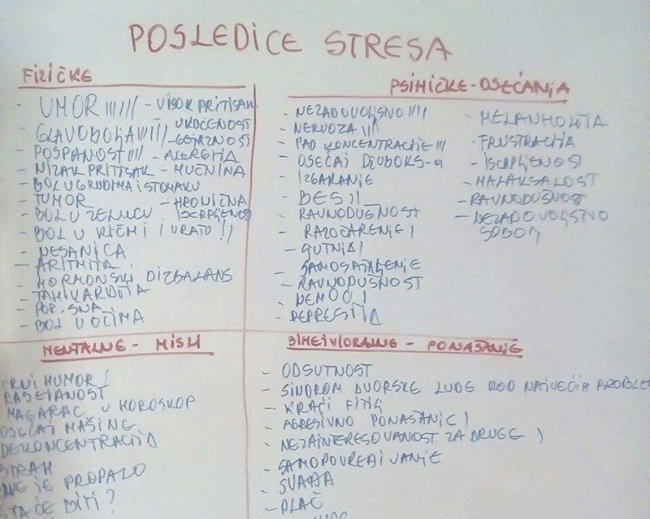 POSLEDICE STRESA
FIZIČKE
- UMOR !!!!/// - VISOK PRITISAK
- UKOČENOST
- GLAVOBOLJA !!!!!
- POSPANOST !!! - ALERGIJA
- NIZAK PRITISAK - MUČNINA
- BOL U GRUDIMA I STOMAKU
- TUMOR - HRONIČNA
ISCRPLJENOST
- BOL U ŽELUCU
- BOL U KIČMI I VRATU !)
- NESANICA
- ARITMIJA
- HORMONSKI DIZBALANS
- TAHIKARDIJA
- POP. SNA
- BOL U OČIMA
PSIHIČKE - OSEĆANJA
- NEZADOVOLJSTVO ////
- NERVOZA ///
- PAD KONCENTRACIJE !!!
- OSEĆAJ DŽUBOKS-a
- IZGARANJE
- BES //
- RAVNODUŠNOST
- RAZOČARENJE /
- SAMOSAŽALJENJE
- RAVNODUŠNOST
- NEMOĆ /
- DEPRESIJA
- MELANHOLIJA
- FRUSTRACIJA
- ISCRPLJENOST
- MALAKSALOST
- RAVNODUŠNOST
- NEZADOVOLJSTVO
SOBOM
MENTALNE - MISLI
CRNI HUMOR /
RASEJANOST
MAGARAC U HOROSKOP
OSEĆAJ MAŠINE
DEKONCENTRACIJA
STRAH
JE PROPALO
ŠTA ĆE BITI?
BIHEJVIORALNE - PONAŠANJE
- ODSUTNOST
- SINDROM DVORSKE LUDE KOD NAJVEĆIH PROBLE
- KRAĆI FITILJ
- AGRESIVNO PONAŠANJE /
- NEZAINTERESOVANOST ZA DRUGE )
- SAMOPOVREĐIVANJE
- SVAĐA
- PLAČ